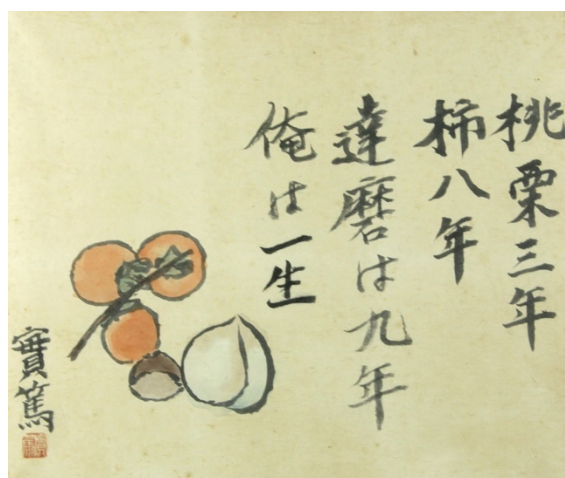 桃栗三年
柿八年
達磨は九年
俺は一生
實篤